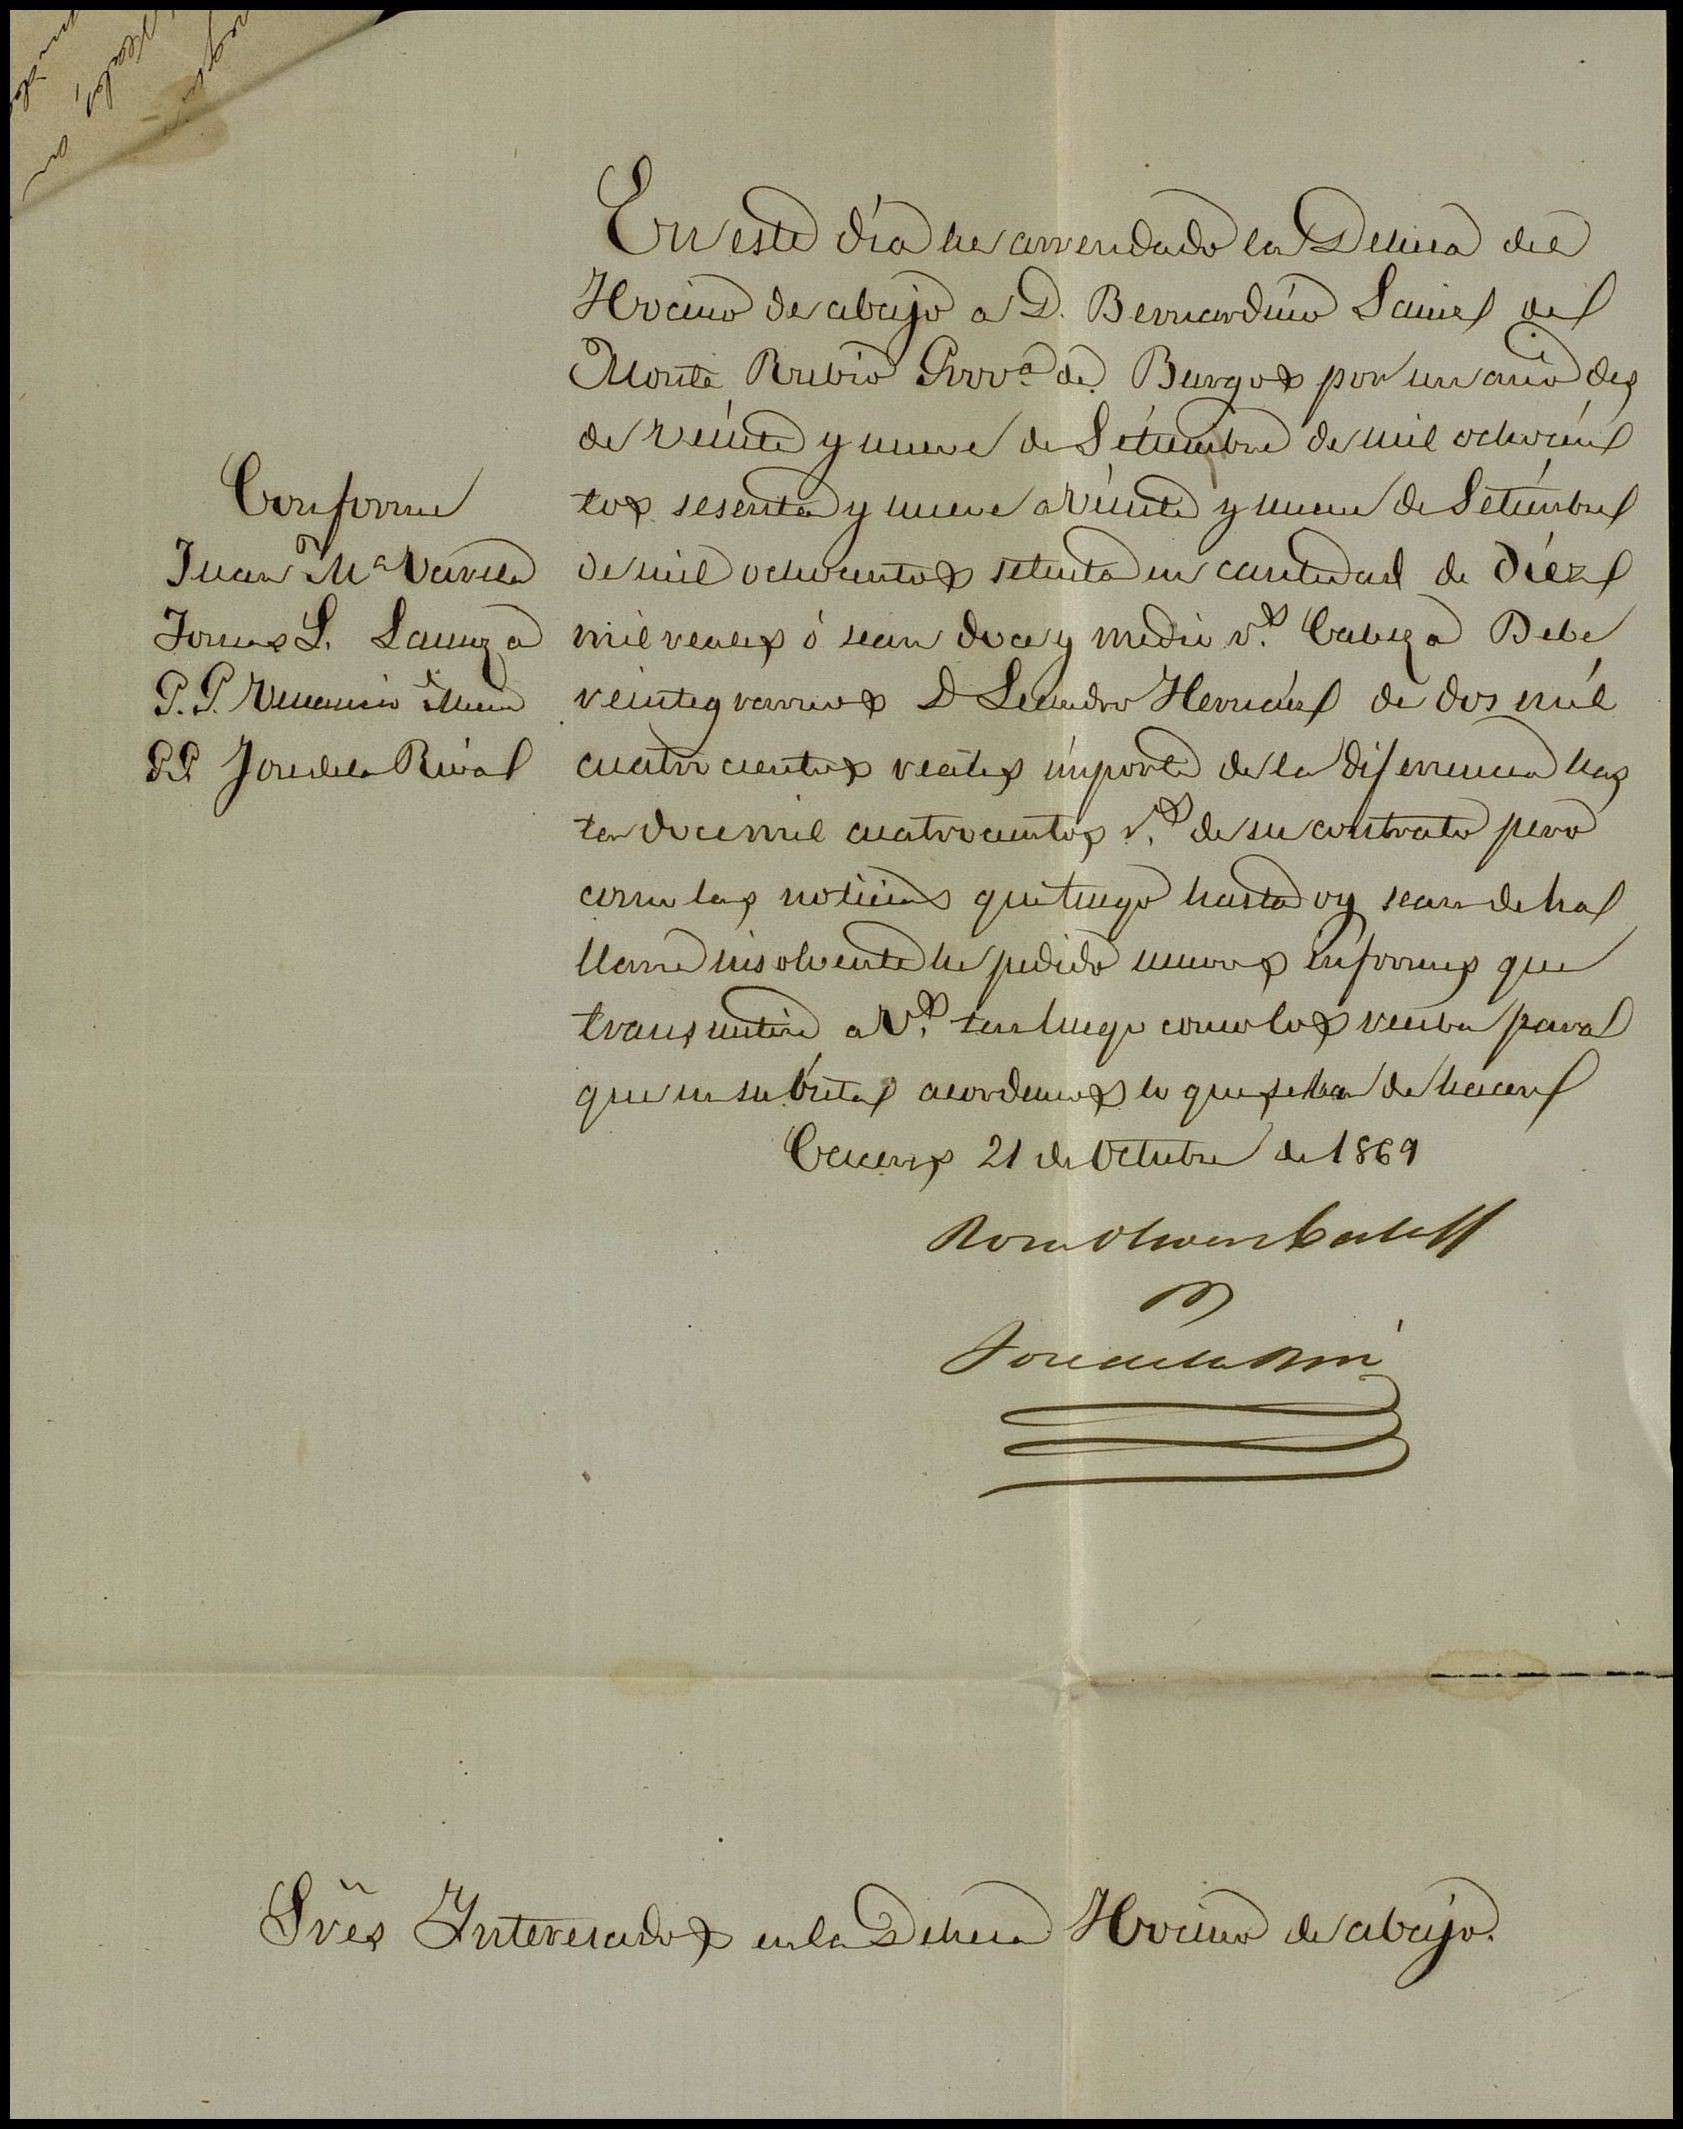 En este día he arrendado la Dehesa del
Hocino de abajo a D. Bernardino Sainz del
Monte Rubio Prov.ª de Burgos por un año des
de veinte y nueve de Setiembre de mil ochocien
tos sesenta y nueve a veinte y nueve de Setiembre
de mil ochocientos setenta en cantidad de diez
mil reales ó sean doce y medio r.s Cabeza Debe
reintegrarnos D Leandro Hernáez de dos mil
cuatrocientos reales importe de la diferencia has
ta doce mil cuatrocientos r.s de su contrato pero
como las noticias que tengo hasta oy sean de ha
llarse insolvente he pedido nuevos informes que
transmitiré a V.s tan luego como los reciba para
que en su vista acordemos lo que se ha de hacer
Caceres 21 de Octubre de 1869
José de la Riva
Conforme
Juan M.ª Varela
Tomas L. Lanuza
P. P. Venancio
PP José de la Riva
Sres Interesados en la Dehesa Hocino de abajo.